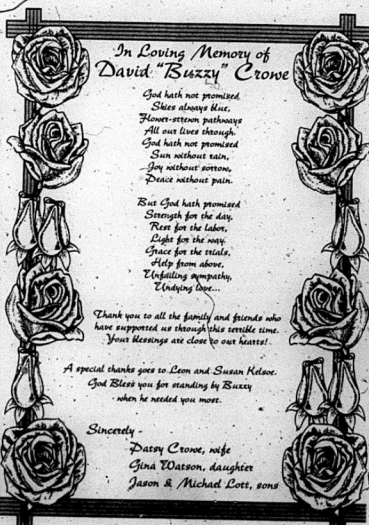 In Loving Memory of
David "Buzzy" Crowe
God hath not promised
Skies always blue,
Flower-strewn pathways
All our lives through.
God hath not promised
Sun without rain,
Joy without sorrow,
Peace without pain.
But God hath promised
Strength for the day,
Rest for the labor,
Light for the way.
Grace for the trials,
Help from above,
Unfailing sympathy,
Undying love...
Thank you to all the family and friends who
have supported us through this terrible time.
Your blessings are close to our hearts!
A special thanks goes to Leon and Susan Kelsoe.
God Bless you for standing by Buzzy
when he needed you most.
Sincerely -
Patsy Crowe, wife
Gina Watson, daughter
Jason & Michael Lott, sons